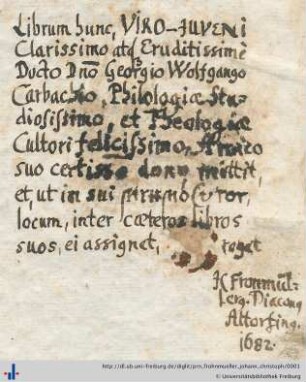 Librum hunc, VIRO-JUVENI
Clarissimo atq̃ Eruditissimè
Docto Dn̄o Georgio Wolfgango
Carbachio, Philologiæ Stu-
diosissimo, et Theologiæ
Cultori felicissimo, Amico
suo certisso dono mittit,
et, ut in sui
locum, inter cæteros libros
suos, ei assignet, rogat
JC Fronmül-
lerg. Diacong
Altorfing.
1682.
http://dl.ub.uni-freiburg.de/diglit/prn_frohnmueller_johann_christoph/0001
© Universitätsbibliothek Freiburg